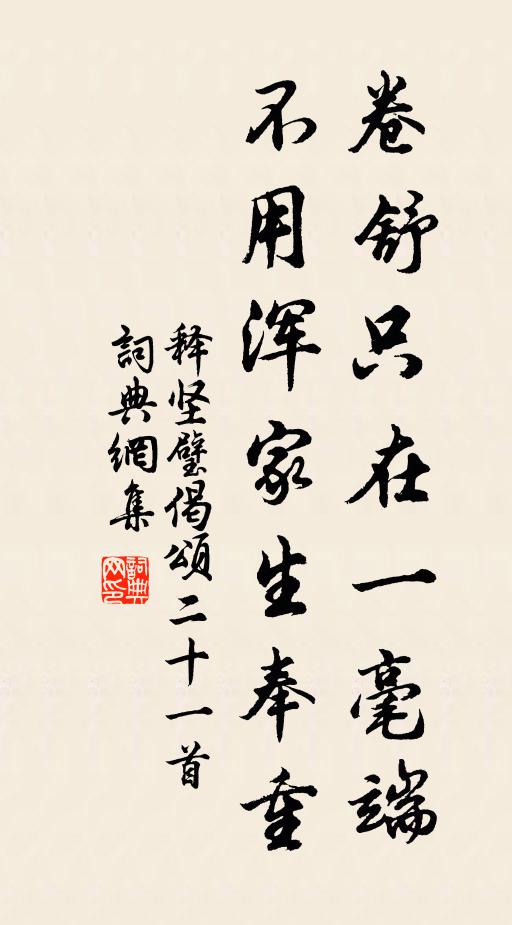 卷舒只在一毫端
不用浑家生奉重
释坚璧偈颂二十一首
詞典網集
詞典网印